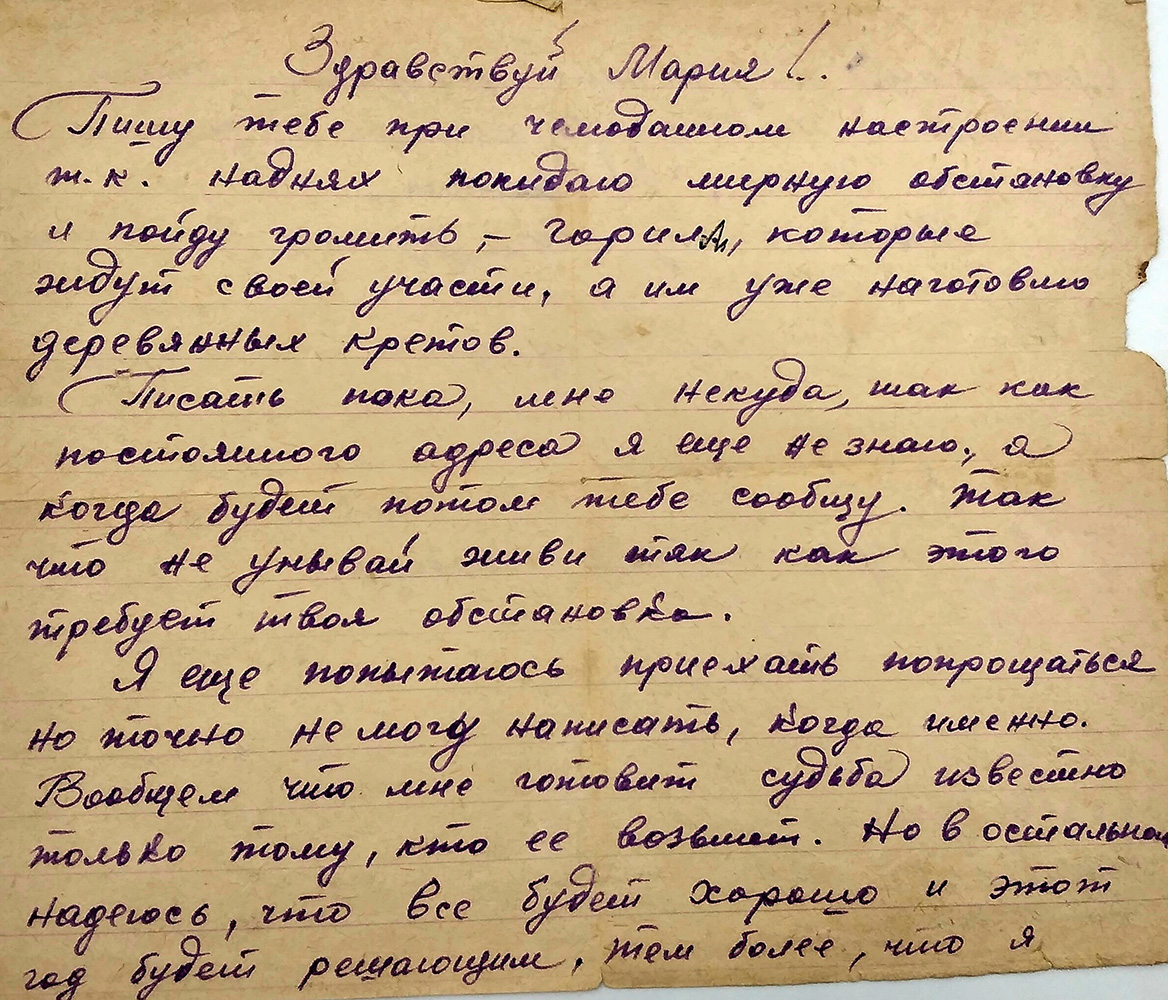 Здравствуй Мария!..
Пишу тебе при чемоданном настроении
т.к. наднях покидаю мирную обстановку
и пойду громить, – горилл, которые
ждут своей участи, а им уже наготовлю
деревянных кретов.
Писать пока, мне некуда, так как
постоянного адреса я еще не знаю, а
когда будет потом тебе сообщу. Так
что не унывай живи так как этого
требует твоя обстановка.
Я еще попытаюсь приехать попрощаться
но точно не могу написать, когда именно.
Вообщем что мне готовит судьба известно
только тому, кто ее возьмет. Но в остальном
надеюсь, что все будет хорошо и этот
год будет решающим, тем более, что я